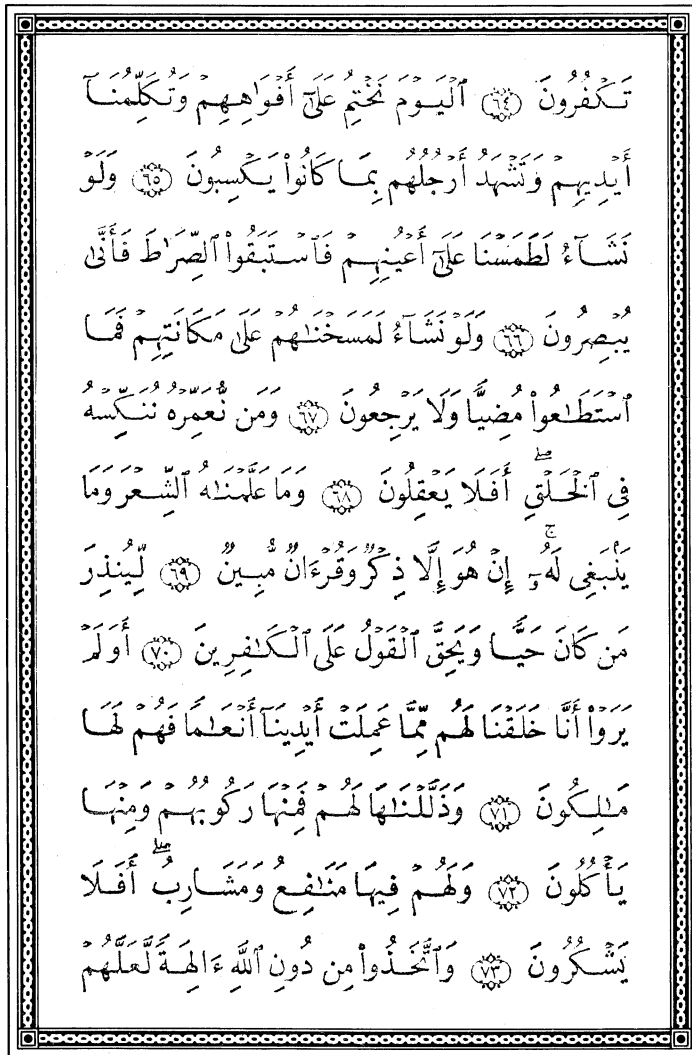 تَكۡفُرُونَ ٦٤ ٱلۡيَوۡمَ نَخۡتِمُ عَلَىٰٓ أَفۡوَٰهِهِمۡ وَتُكَلِّمُنَآ
أَيۡدِيهِمۡ وَتَشۡهَدُ أَرۡجُلُهُم بِمَا كَانُواْ يَكۡسِبُونَ ٦٥ وَلَوۡ
نَشَآءُ لَطَمَسۡنَا عَلَىٰٓ أَعۡيُنِهِمۡ فَٱسۡتَبَقُواْ ٱلصِّرَٰطَ فَأَنَّىٰ
يُبۡصِرُونَ ٦٦ وَلَوۡ نَشَآءُ لَمَسَخۡنَٰهُمۡ عَلَىٰ مَكَانَتِهِمۡ فَمَا
ٱسۡتَطَٰعُواْ مُضِيّٗا وَلَا يَرۡجِعُونَ ٦٧ وَمَن نُّعَمِّرۡهُ نُنَكِّسۡهُ
فِي ٱلۡخَلۡقِۖ أَفَلَا يَعۡقِلُونَ ٦٨ وَمَا عَلَّمۡنَٰهُ ٱلشِّعۡرَ وَمَا
يَنۢبَغِي لَهُۥٓۚ إِنۡ هُوَ إِلَّا ذِكۡرٞ وَقُرۡءَانٞ مُّبِينٞ ٦٩ لِّيُنذِرَ
مَن كَانَ حَيّٗا وَيَحِقَّ ٱلۡقَوۡلُ عَلَى ٱلۡكَٰفِرِينَ ٧٠ أَوَلَمۡ
يَرَوۡاْ أَنَّا خَلَقۡنَا لَهُم مِّمَّا عَمِلَتۡ أَيۡدِينَآ أَنۡعَٰمٗا فَهُمۡ لَهَا
مَٰلِكُونَ ٧١ وَذَلَّلۡنَٰهَا لَهُمۡ فَمِنۡهَا رَكُوبُهُمۡ وَمِنۡهَا
يَأۡكُلُونَ ٧٢ وَلَهُمۡ فِيهَا مَنَٰفِعُ وَمَشَارِبُۖ أَفَلَا
يَشۡكُرُونَ ٧٣ وَٱتَّخَذُواْ مِن دُونِ ٱللَّهِ ءَالِهَةٗ لَّعَلَّهُمۡ